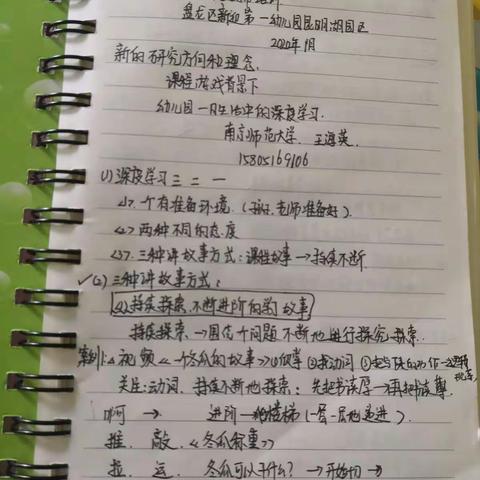 盘龙区新迎第一幼儿园昆明湖园区
2020年1月
新的研究方向和理念.
课程游戏背景下
幼儿园一日生活中的深度学习.
南京师范大学. 王海英.
15805169106
(1)深度学习三 二 一
<1>. 一个有准备环境. (孩子.老师准备好).
<2> 两种不同的态度
<3>. 三种讲故事方式:课程故事→持续不断.
✓(2)三种讲故事方式:
<1>持续探索.不断进阶的学习故事
持续探索.→围绕一个问题不断地进行探究 探索..
案例1:视频 《一个冬瓜的故事》
关注:动词、持续不断地探索; 先把书读厚→再把书读薄.
啊 → 进阶→ 爬楼梯 (一层一层地递进).
推. 敲. 《冬瓜称重》
拉. 运. 冬瓜可以干什么? →开始切→